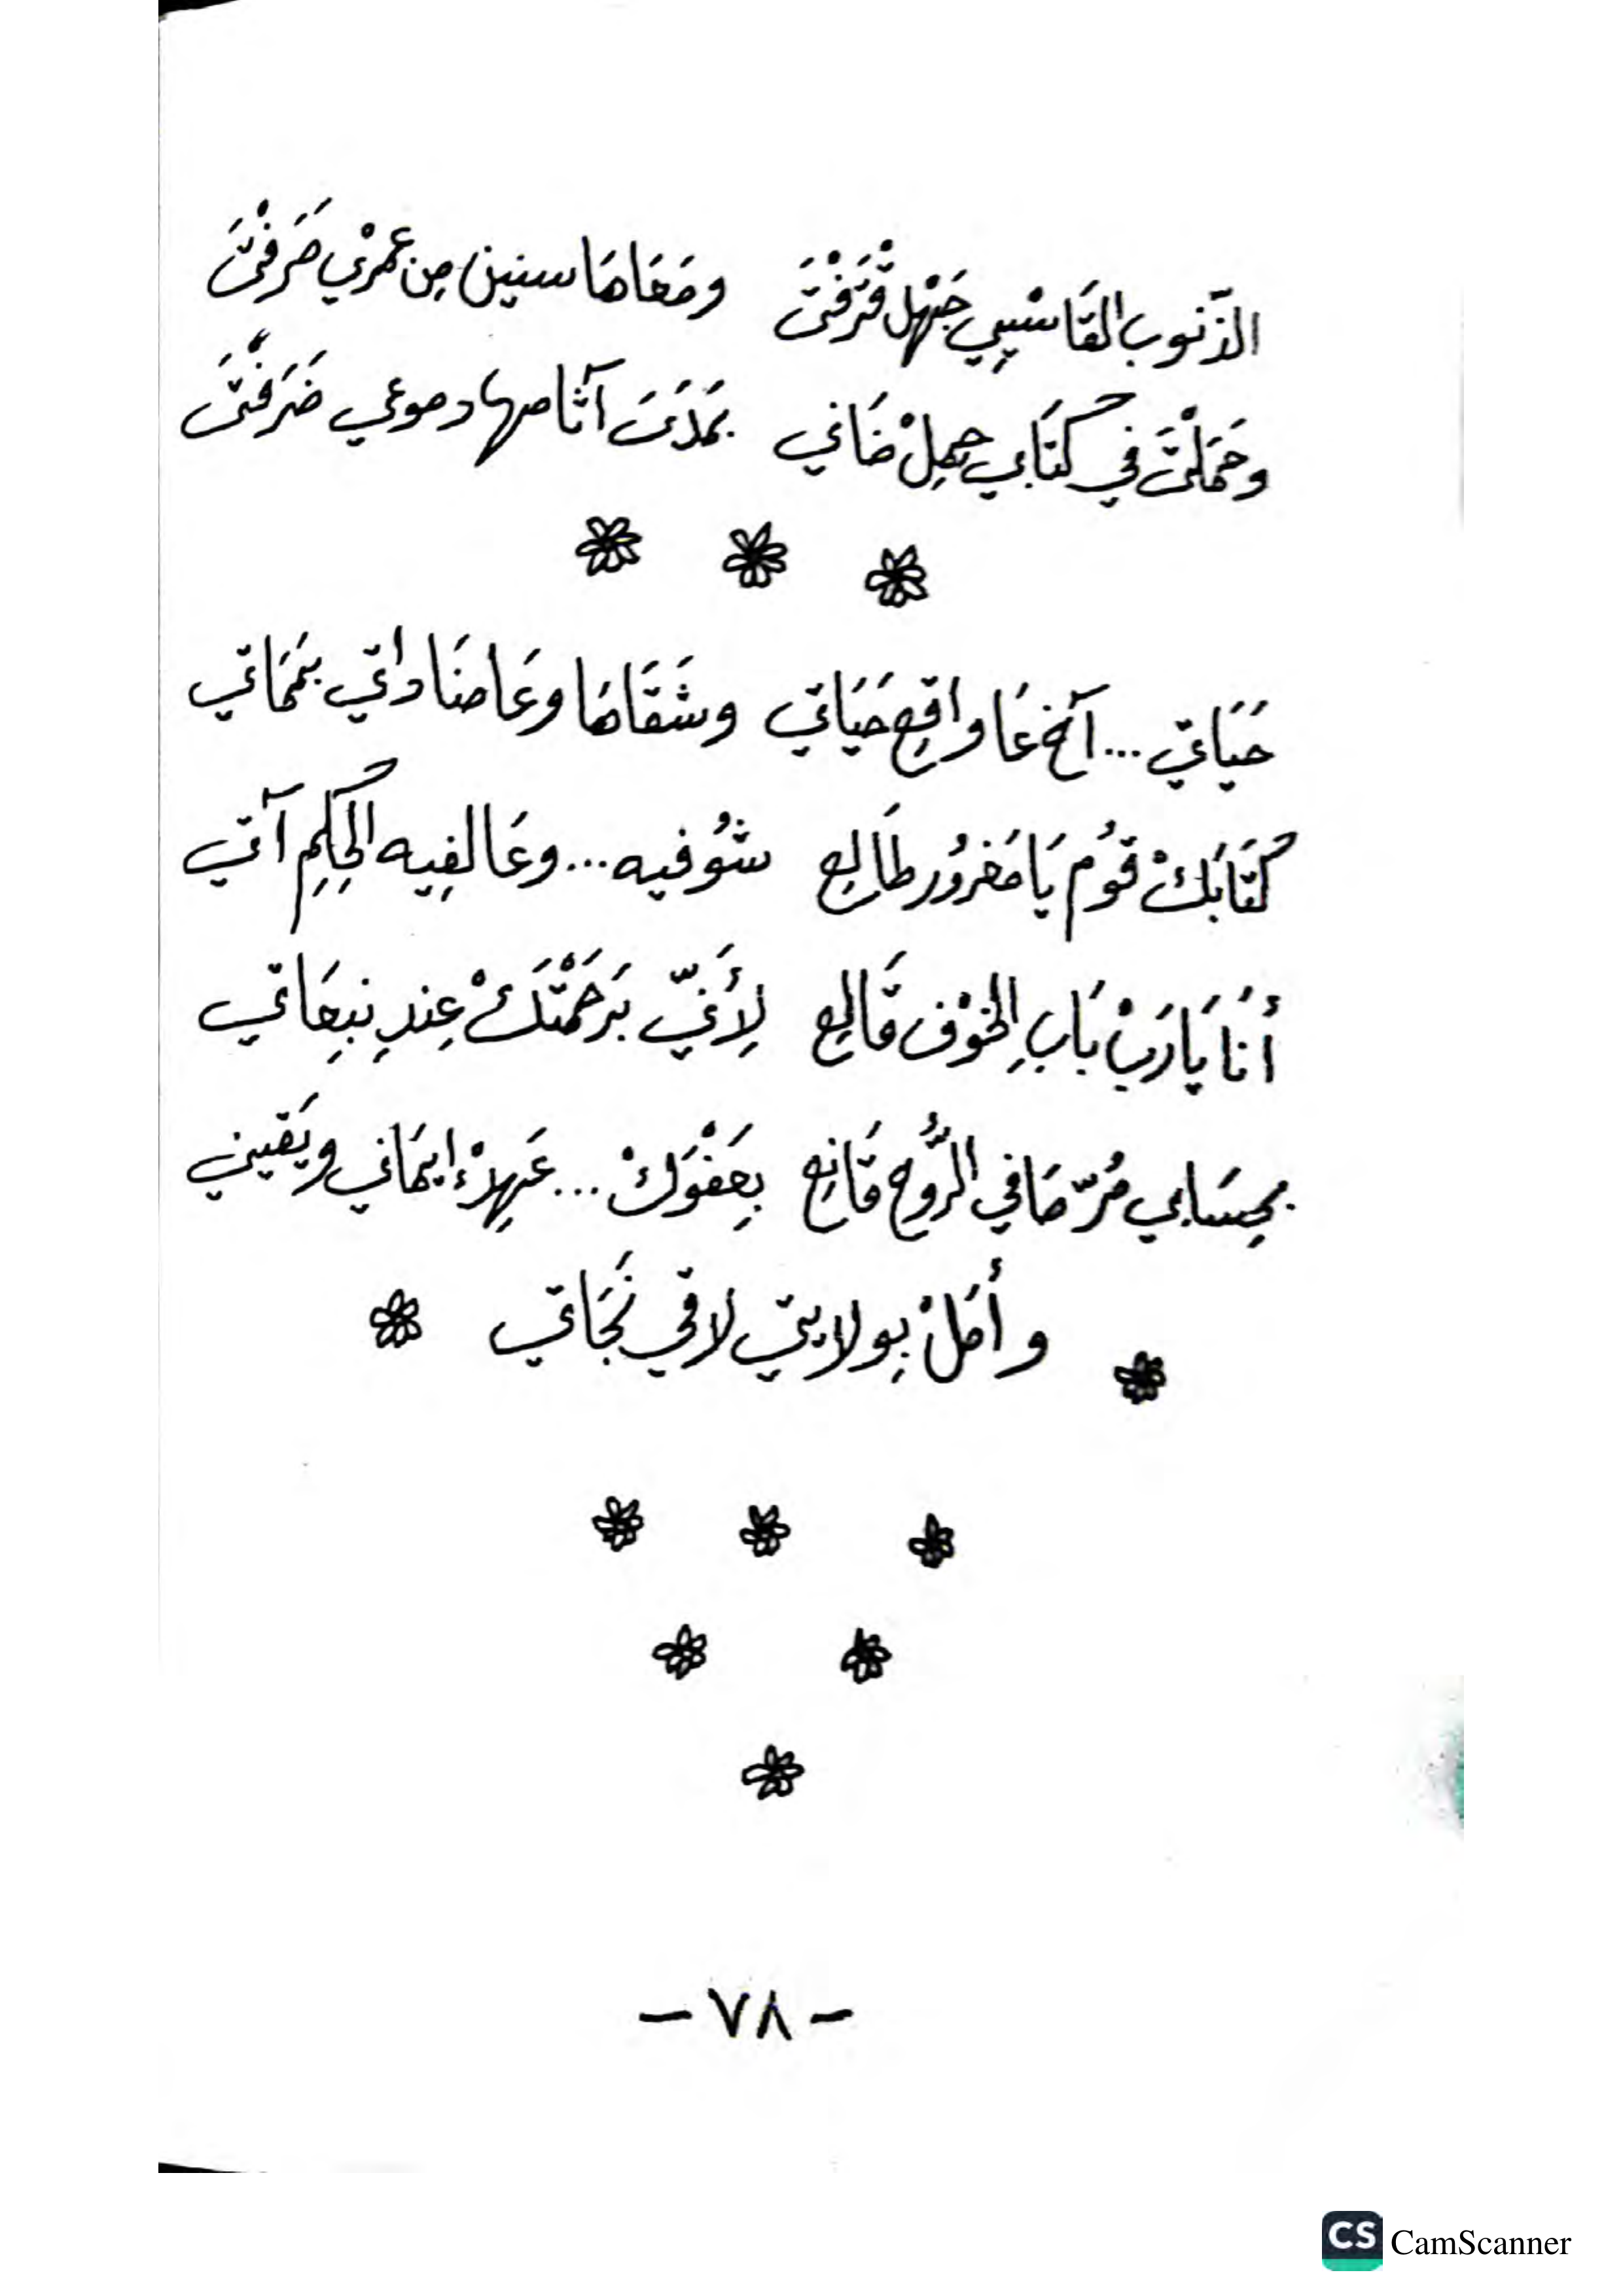 الذّنوب القَاسْيِي جَهْل قْتَرَفْتَ ومَعَاهَا سنين مِن عمرْي صَرَفْتَ
وحَمَلْتَ في كتَابي حِمِلْ ضَاني بمَدَىَ آثامها دموعي ضَرَفْتَ
حَيَاتي... آخ عَا واقِع حَيَاتي وشَقَاهَا وعَا صنَاداتي بمَمَاتي
كتَابَكْ قوُم يَا مَغرُور طَالِع شوُفيه... وعَا لفِيه الحِكِم آتي
أنَا يَا رَبْ بَابِ الخَوْف قَالِع لِأَنّي بَرَحمْتَكْ عِندِ نبِعَاتي
بحِسَابي مُرّ صَافي الرُّوح قَانِع بِعَفْوَكْ... عَهِلاءْ ايمَاني ويَقيني
وأمَلْ بِولايتي لاقي نَجَاتي
- ٧٨ -
CS CamScanner